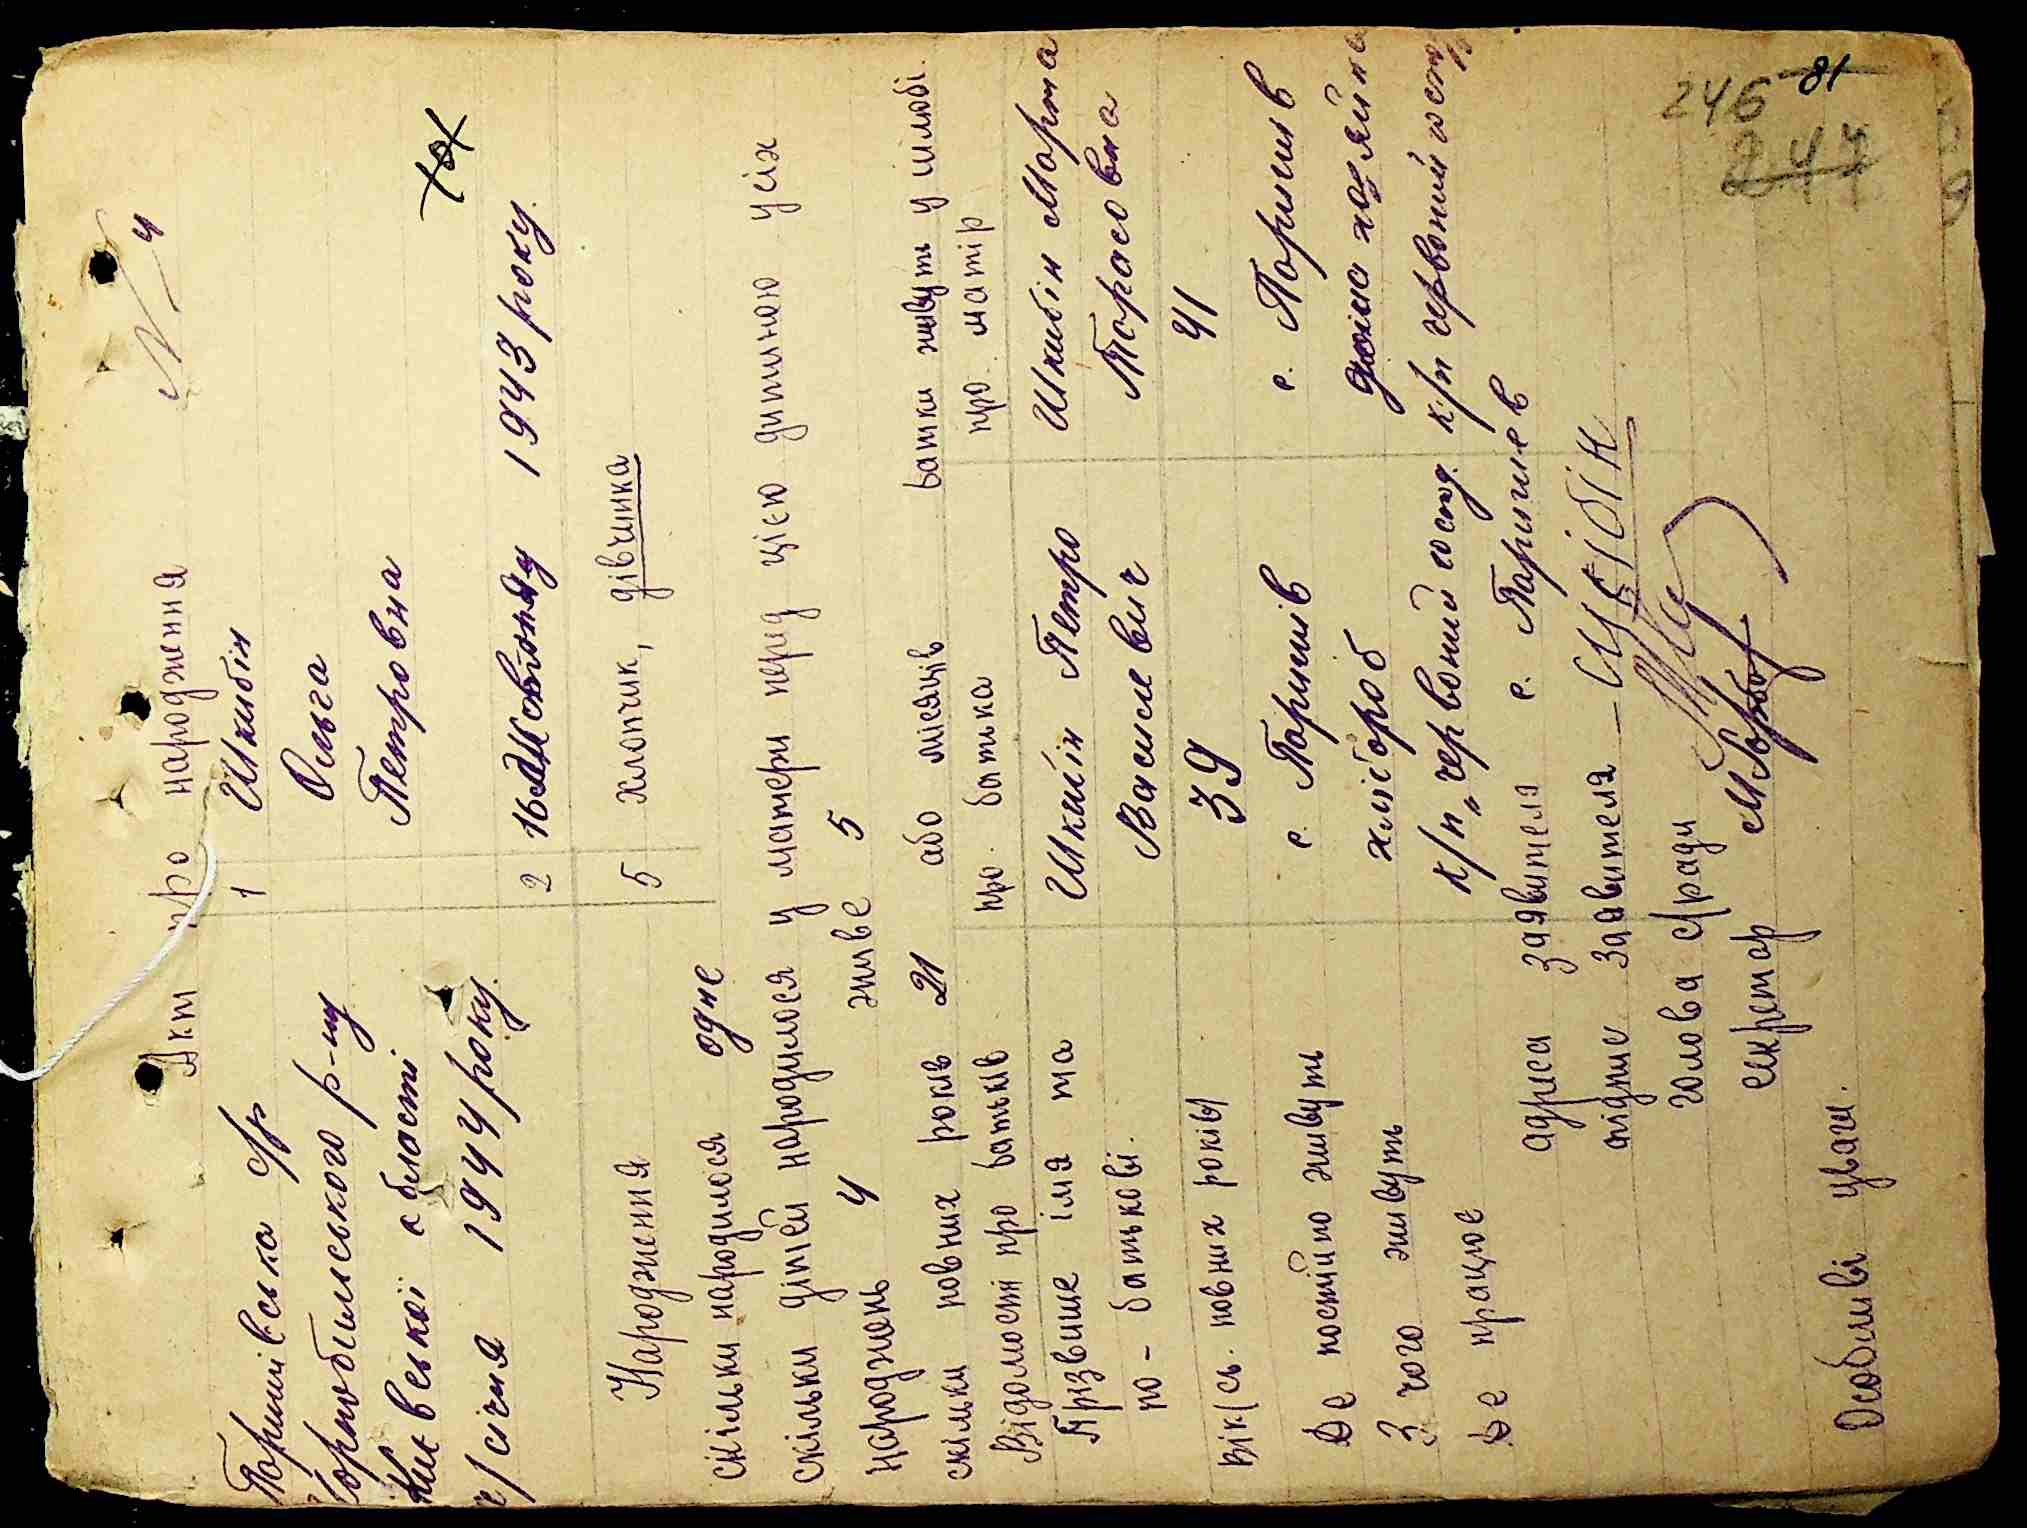 Акт про народження № 4
Паришівська с/р
Чорнобильського р-ну
Київської області
4/січня 1944 року.
1 Шкибін
Ольга
Петровна
2 16 Жовтня 1943 року.
Народження 5 хлопчик, дівчинка
скільки народилося одне
скільки дітей народилося у матери перед цією дитиною усіх
народжень 4 живе 5
скільки повних років 21 або місяців батки живуть у шлюбі.
Відомості про батьків про батька про матір
Прізвише імя та Шкибін Петро Шкибін Марта
по-батькові. Васильевич Тарасовна
вік (сь. повних років) 39 41
Де постійно живуть с. Паришів с. Паришів
З чого живуть хлібороб дома хазяйка
Де працює к/п „червоний госпд. к/п червоний госпд
адреса заявителя с. Паришев
підпис заявителя –
голова с/ради
секретар
Особливі уваги.
246
247
81